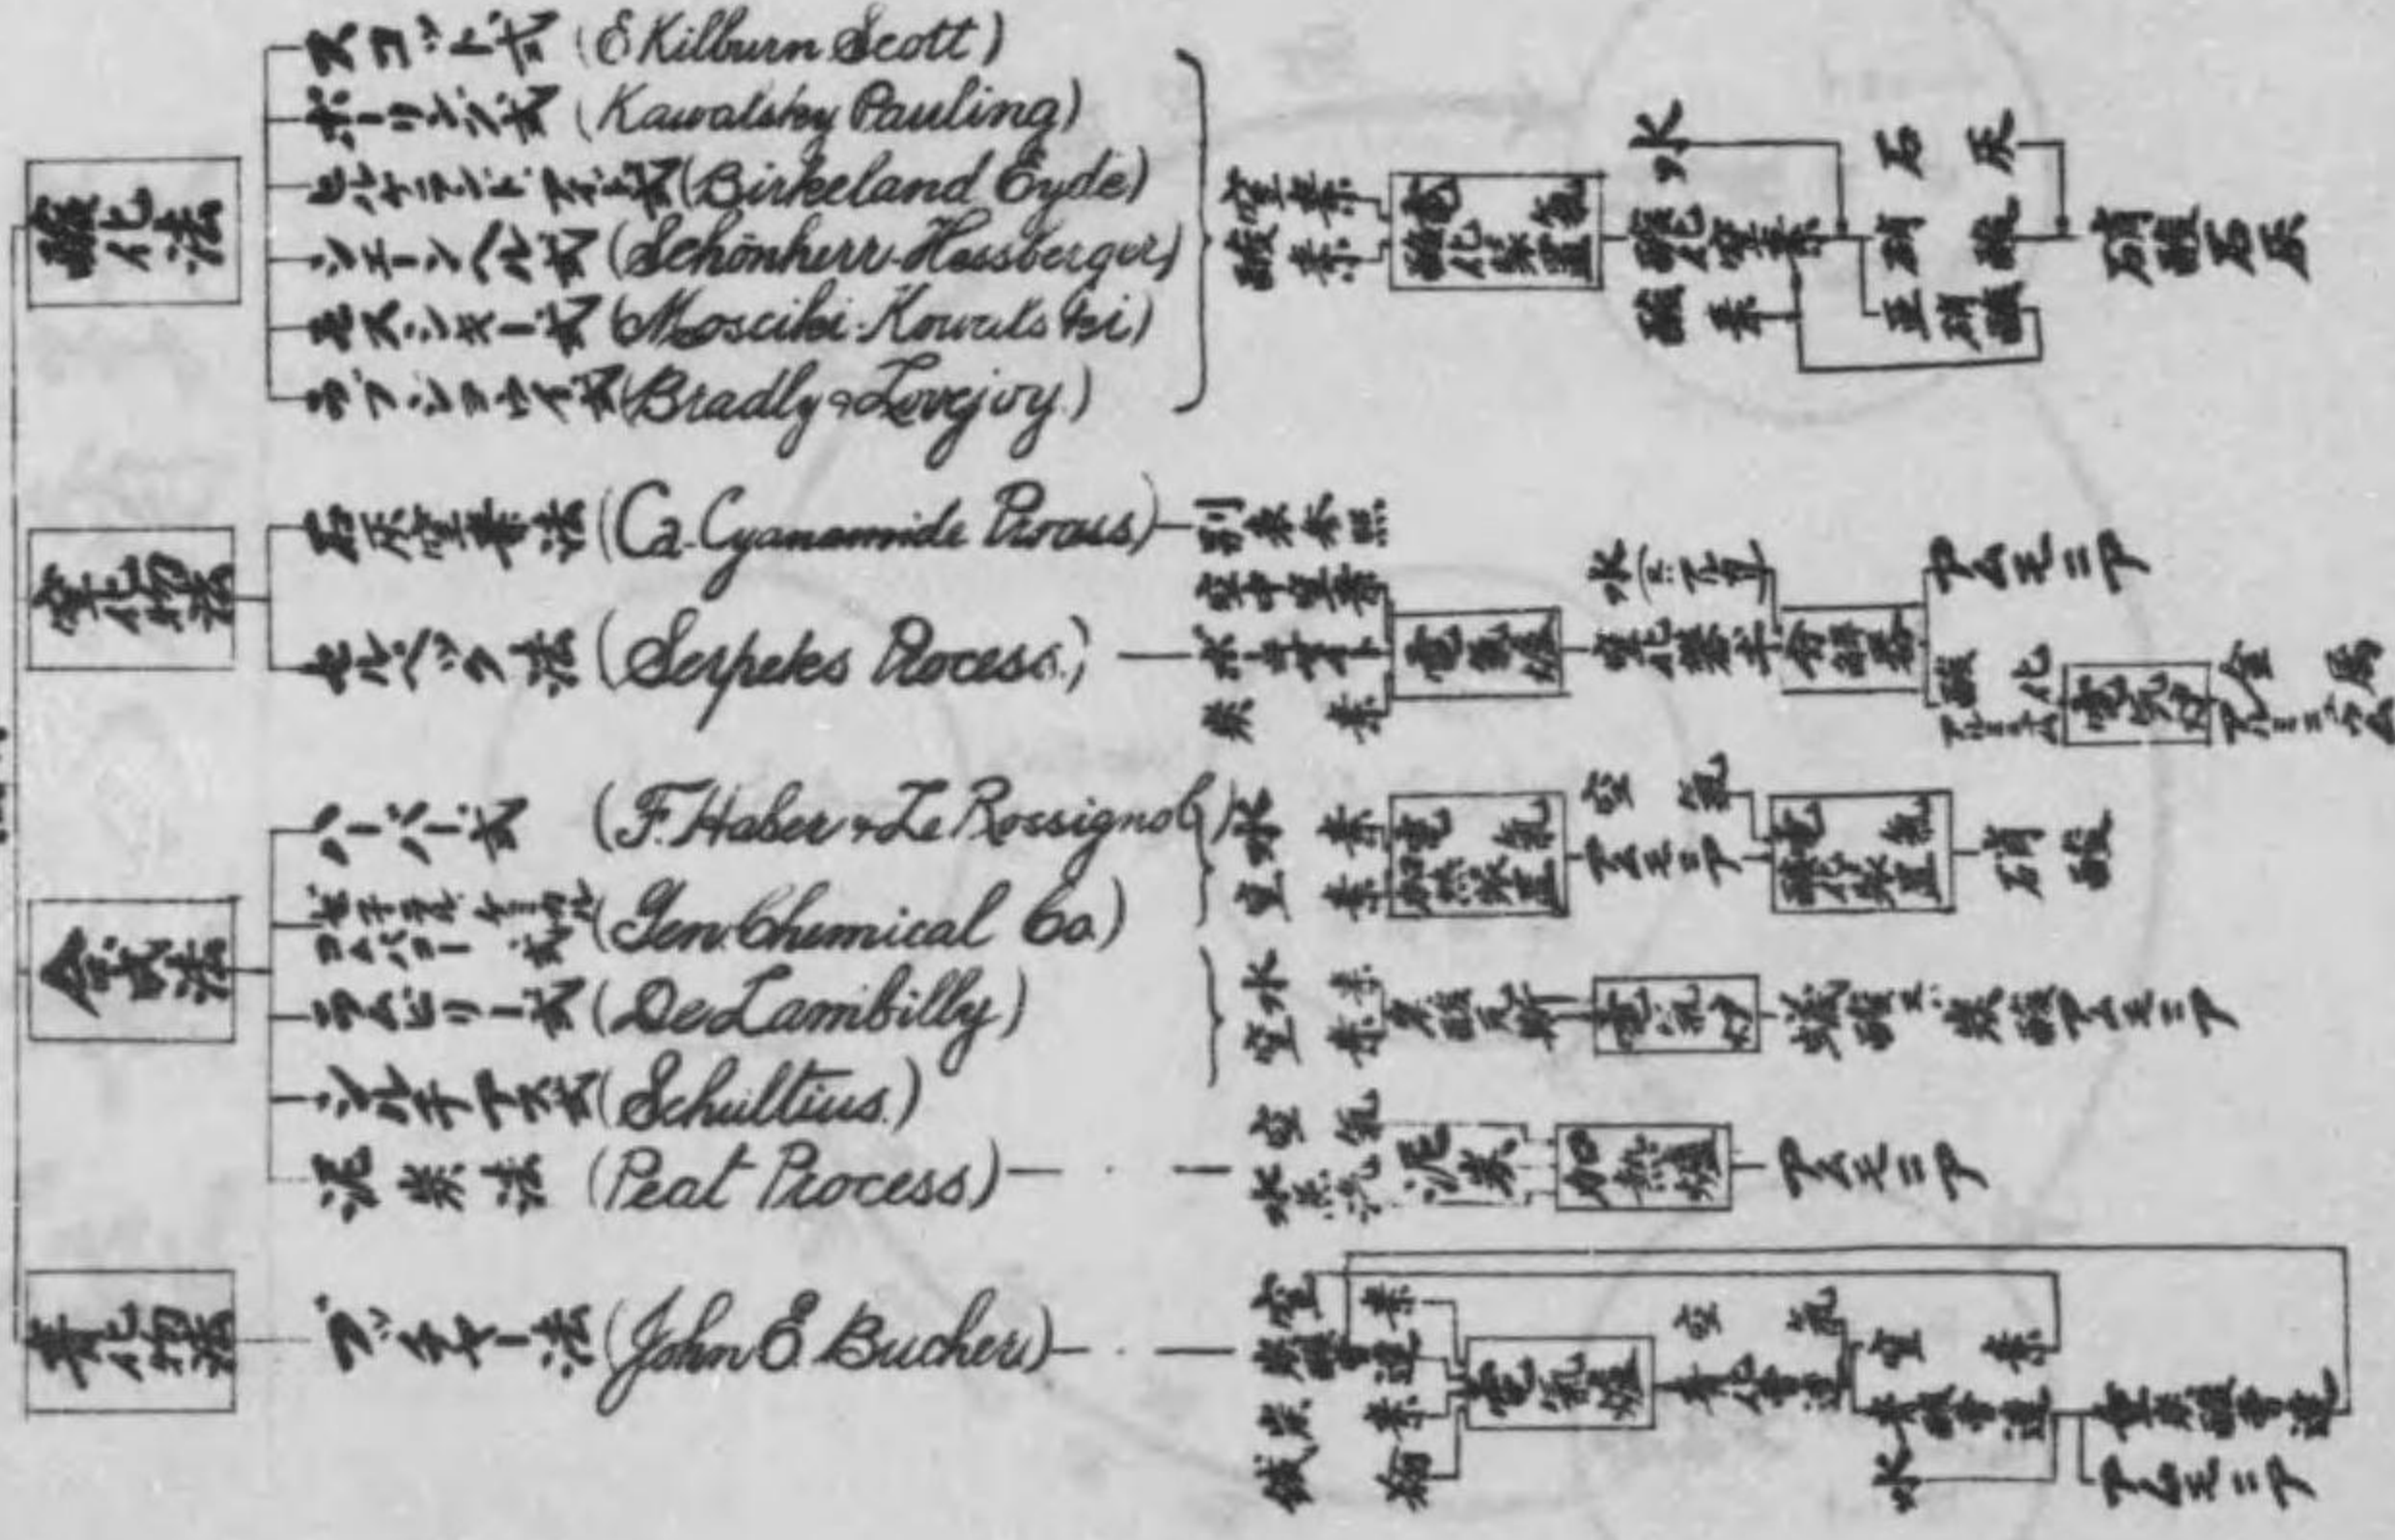 酸化法
スコット式 (E Kilburn Scott)
ポーリング式 (Kawalsky Pauling)
(Birkeland Eyde)
シェーンヘル式 (Schönherr-Hessberger)
モスシキー式 (Moscihi-Kowalski)
(Bradly & Lovejoy)
窒素
酸素
電氣
酸化装置
水
酸化窒素
酸素
石灰
硝酸
亜硝酸
硝酸石灰
窒化物法
石灰窒素法 (Ca-Cyanamide Process)
別表参照
セルペック法 (Serpeks Process.)
空中窒素
ボーキサイト
炭素
電氣爐
水
分解器
アムモニア
酸化
アルミニウム
金属
アルミニウム
合成法
ハーバー式 (F. Haber & Le Rossignol)
(Gen. Chemical Co.)
ラムビリー式 (De Lambilly)
シルチアス式 (Schultius.)
泥炭法 (Peat Process)
水素
窒素
電氣
加熱装置
空氣
アムモニア
電氣
酸化装置
硝酸
水素
窒素
アムモニア
空氣
水蒸汽
泥炭
加熱爐
アムモニア
青化物法
ブッチャー法 (John E. Bucher)
窒素
炭酸曹達
炭素
鐵粉
電氣爐
青化曹達
空氣
窒素
青酸曹達
水
重炭酸曹達
アムモニア